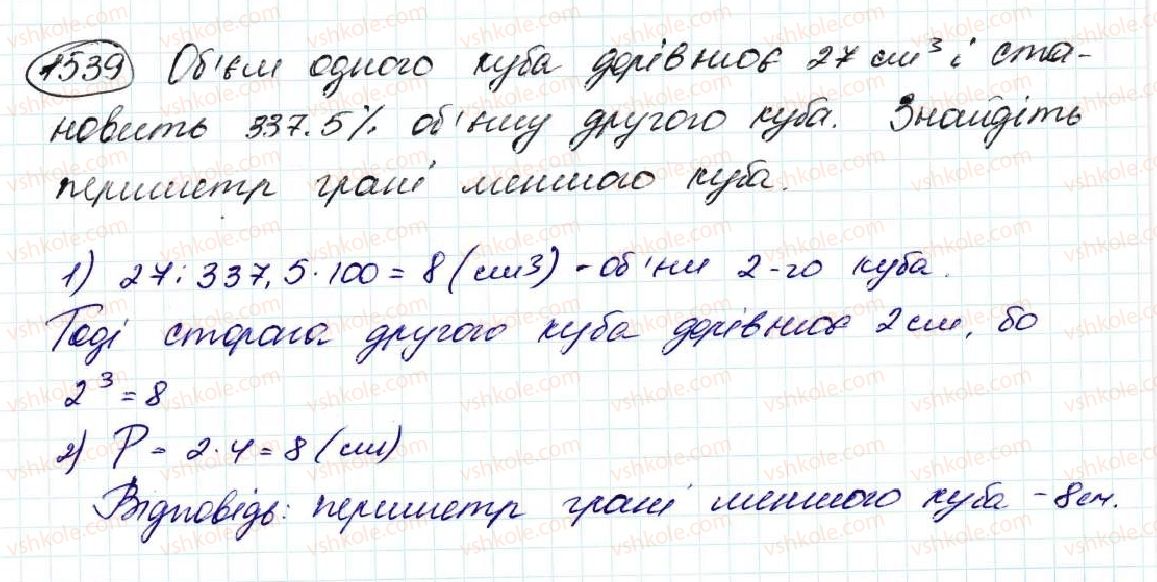 1539 Об'єм одного куба дорівнює 27 см³ і ста-
новить 337.5% об'єму другого куба. Знайдіть
периметр грані меншого куба.
1) 27:337,5·100=8(см3) - об'єм 2-го куба.
Тоді сторона другого куба дорівнює 2см, бо
2³=8
2) P = 2·4=8(см)
Відповідь: периметр грані меншого куба - 8см.